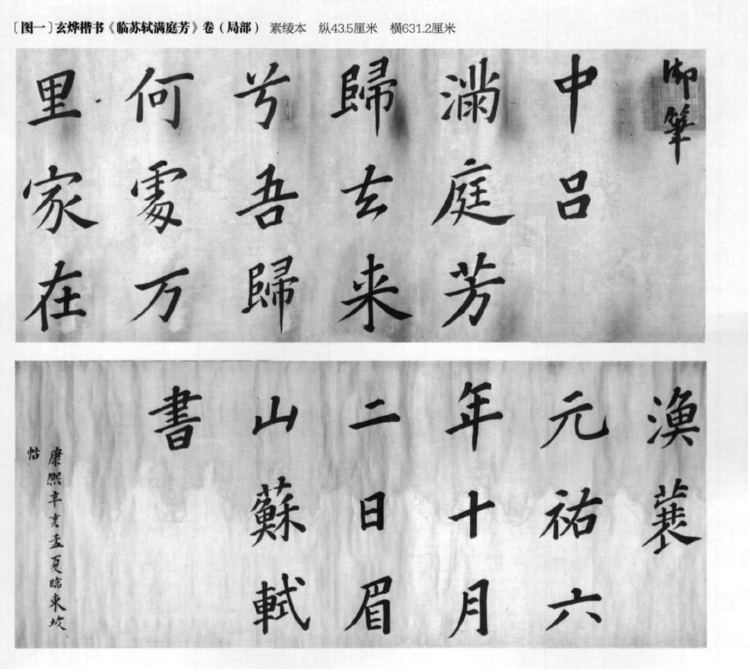 〔图一〕玄烨楷书《临苏轼满庭芳》卷（局部） 素绫本 纵43.5厘米 横631.2厘米
御筆
中吕
满庭芳
歸去来
兮吾歸
何處万
里家在
漁蓑
元祐六
年十月
二日眉
山蘇軾
書
康熙辛亥孟夏臨東坡
帖